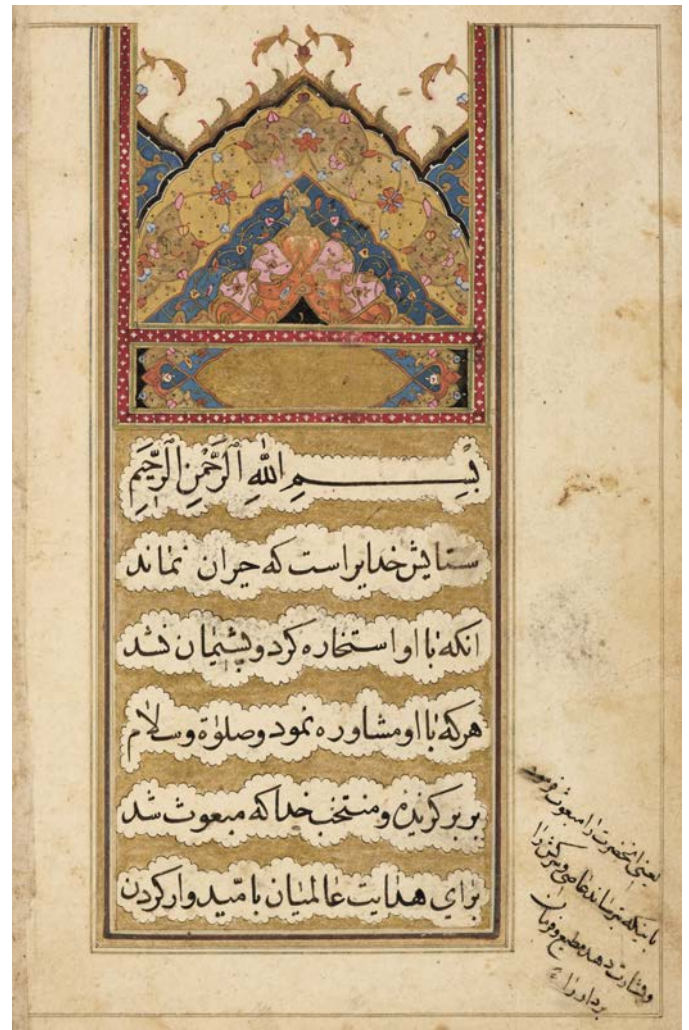 بِسْمِ اللّٰهِ الرَّحْمٰنِ الرَّحِيمِ
ستایش خدایراست که حیران نماند
انکه با او استخاره کرد و پشیمان نشد
هرکه با او مشاوره نمود و صلوٰة و سلام
بر برکزیده و منتخب خدا که مبعوث شد
برای هدایت عالمیان بامّیدوار کردن
یعنی انحضرت را مبعوث فرمود
باینکه بترساند عاصی و سرکش را
و بشارت دهد مطیع و فرمان
بردار را